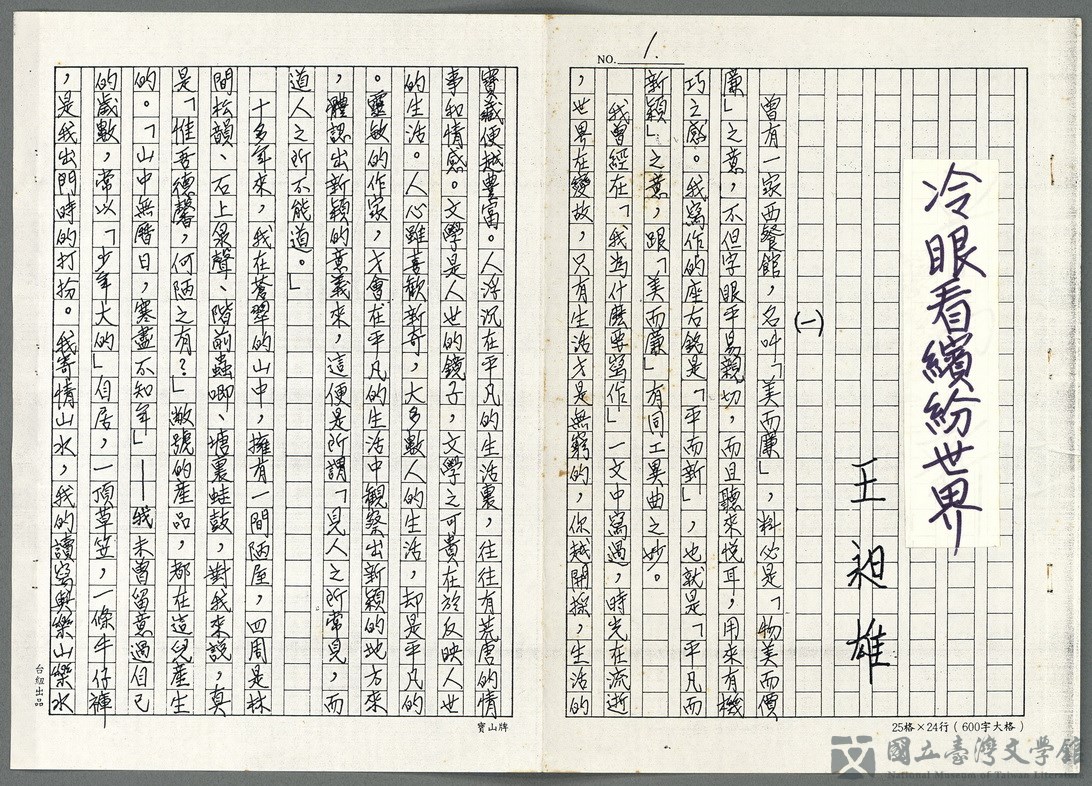 NO. 1.
冷眼看繽紛世界
王昶雄
(一)
曾有一家西餐館，名叫「美而廉」，料必是「物美而價
廉」之意，不但字眼平易親切，而且聽來悅耳，用來有機
巧之感。我寫作的座右銘是「平而新」，也就是「平凡而
新穎」之意，跟「美而廉」有同工異曲之妙。
我曾經在「我為什麼要寫作」一文中寫過，時光在流逝
，世界在變故，只有生活才是無窮的，你越開採，生活的
寶藏便越豐富。人浮沉在平凡的生活裏，往往有荒唐的情
事和情感。文學是人世的鏡子，文學之可貴在於反映人世
的生活。人心雖喜歡新奇，大多數人的生活，却是平凡的
。靈敏的作家，才會在平凡的生活中觀察出新穎的地方來
，體認出新穎的意義來，這便是所謂「見人之所常見，而
道人之所不能道。」
十多年來，我在蒼翠的山中，擁有一間陋屋，四周是林
間松韻、石上泉聲、階前蟲唧、塘裏蛙鼓，對我來說，真
是「惟吾德馨，何陋之有？」敝號的產品，都在這兒產生
的。「山中無曆日，寒盡不知年」——我未曾留意過自己
的歲數，常以「少年大的」自居，一頂草笠，一條牛仔褲
，是我出門時的打扮。我寄情山水，我的讀寫與樂山樂水
25格×24行（600字大格）
寶山牌
台紐出品
國立臺灣文學館
National Museum of Taiwan Literature